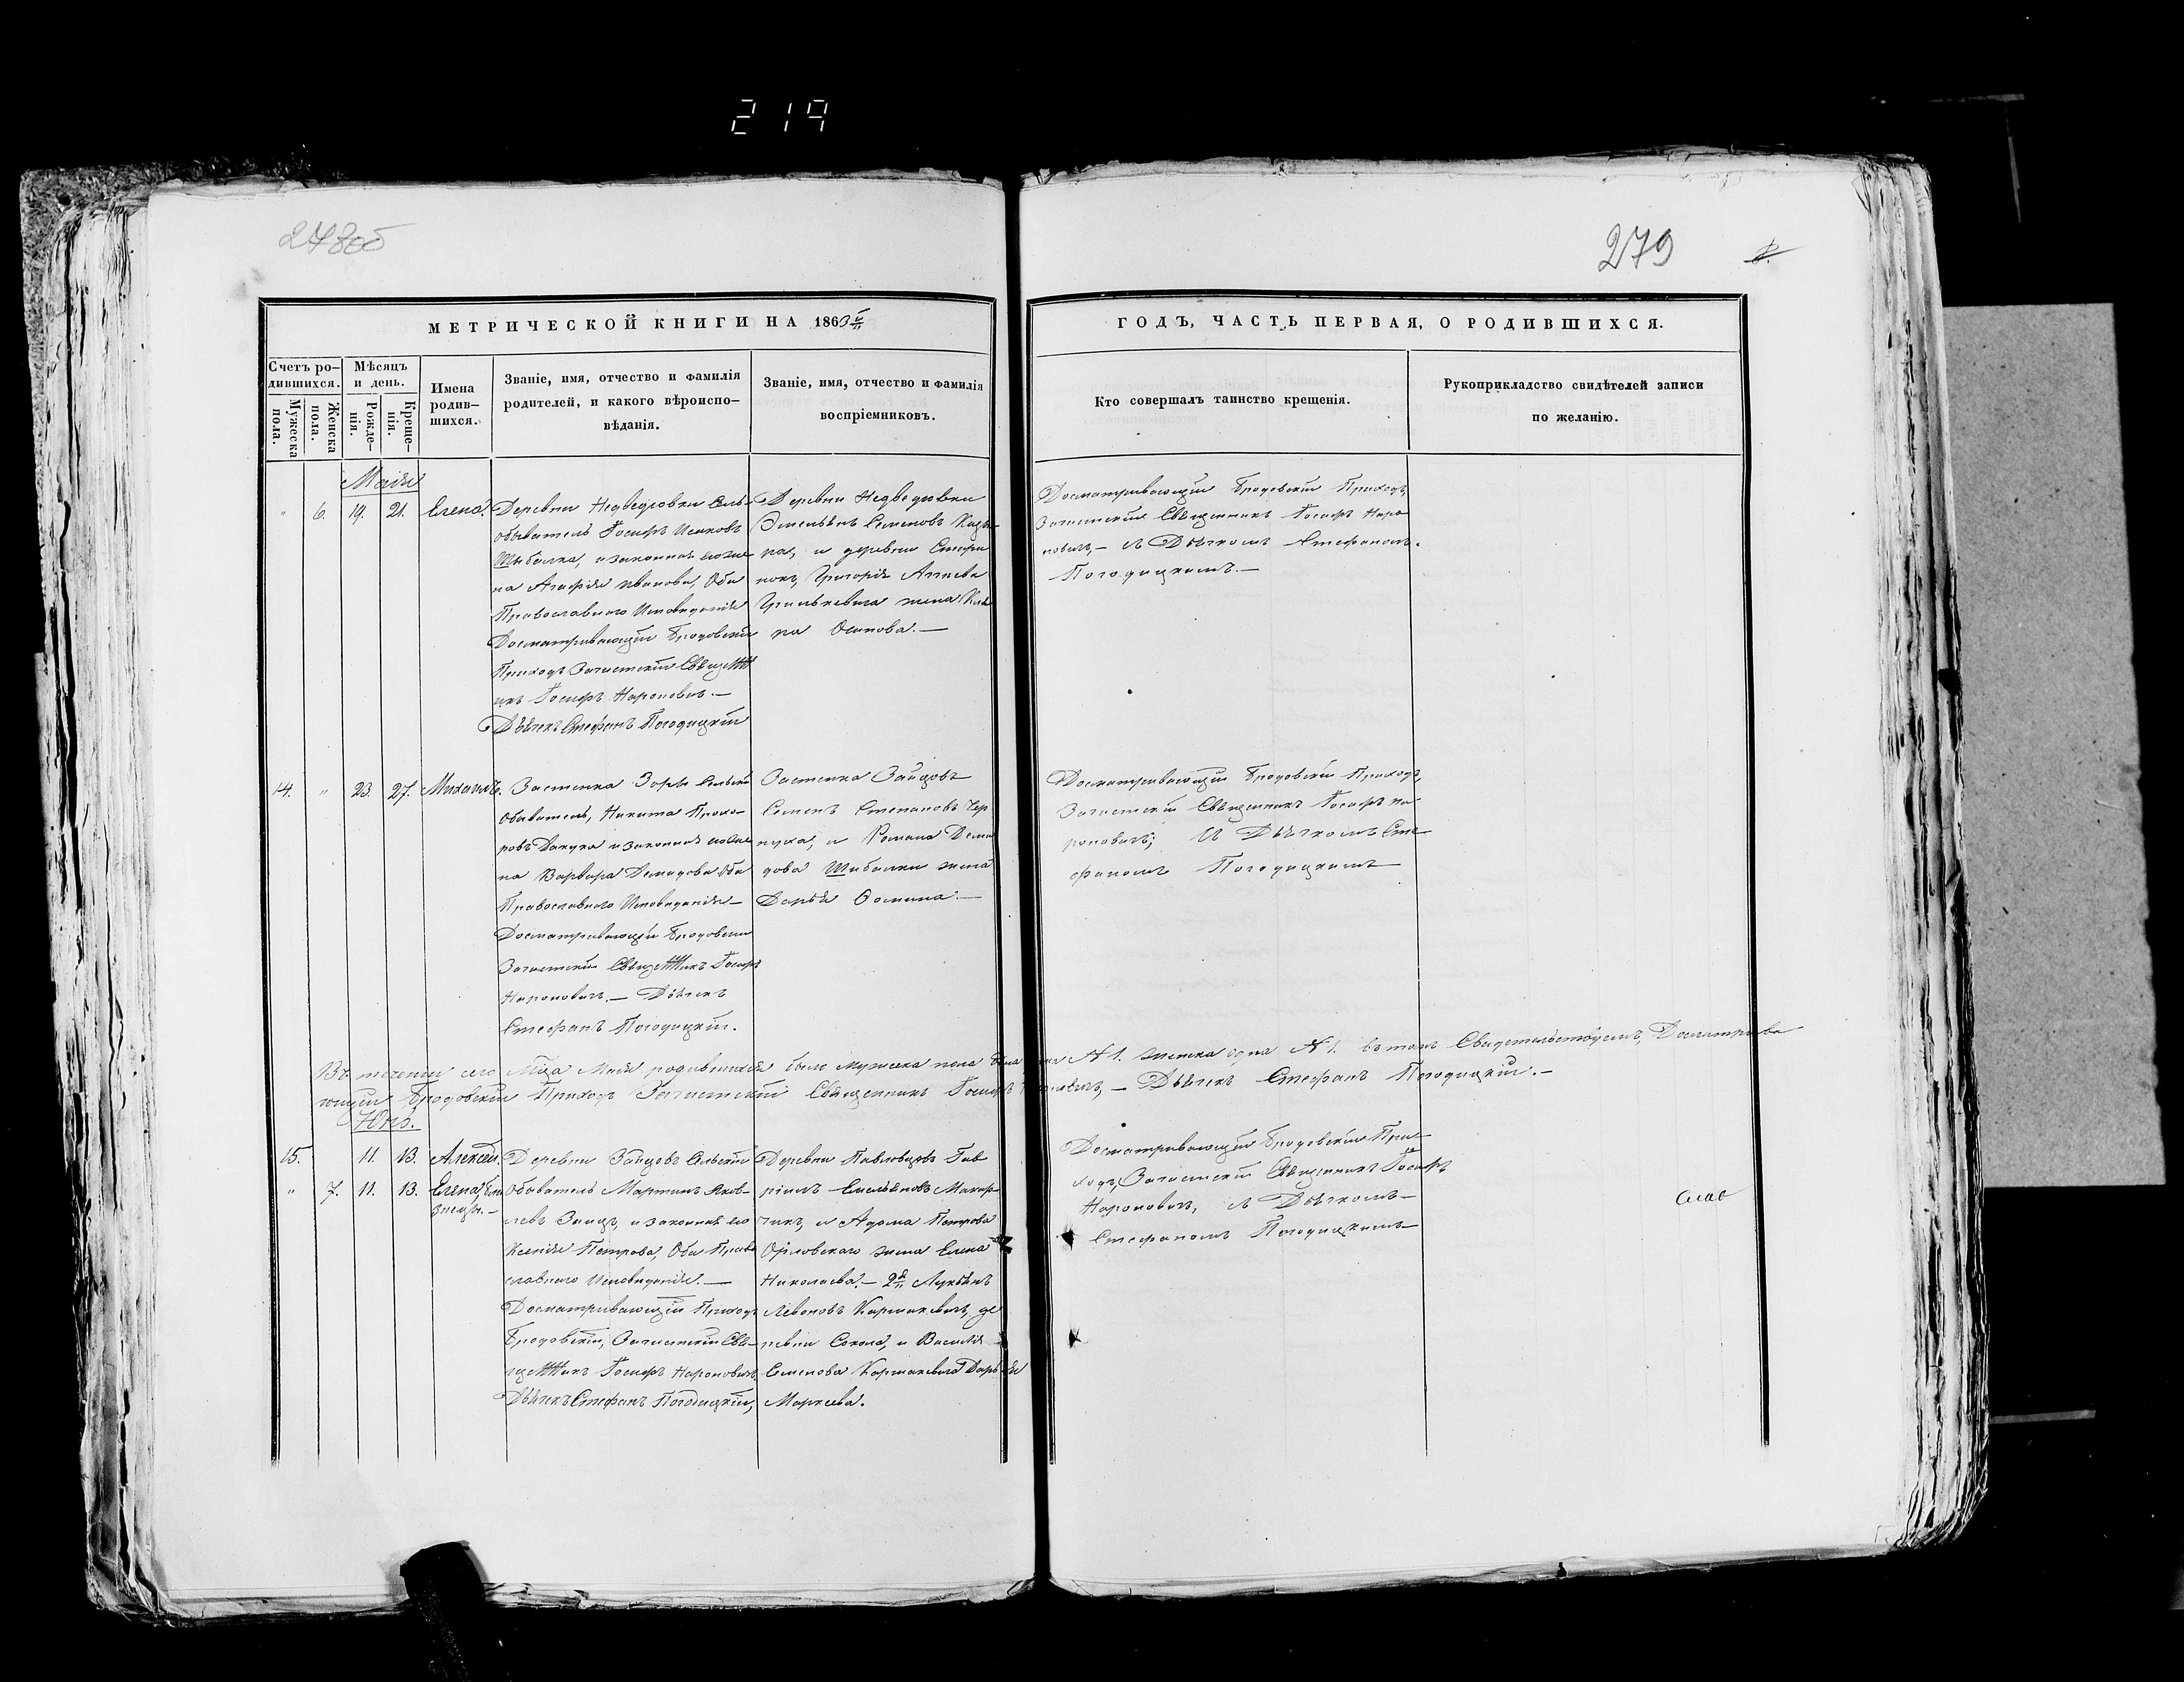 219
278об
279
МЕТРИЧЕСКОЙ КНИГИ НА 1863
ГОДЪ, ЧАСТЬ ПЕРВАЯ, О РОДИВШИХСЯ.
Счетъ ро-
дившихся.
Мужеска
пола.
Женска
пола.
Мѣсяцъ
и день.
Рожде-
нія.
Креще-
нія.
Имена
родив-
шихся.
Званіе, имя, отчество и фамилія
родителей, и какого вѣроиспо-
вѣданія.
Званіе, имя, отчество и фамилія
воспріемниковъ.
Кто совершалъ таинство крещенія.
Рукоприкладство свидѣтелей записи
по желанію.
Маія
" 6. 19. 21. Елена.
Деревни Недведзовки Сель-
обыватель Іосифъ Исаковъ
Шибалка, и законная его же
на Агафія Иванова, Оба
Православнаго Исповеданія
Досматривающій Бродовскій
Приходъ Загистскій Священ
икъ Іосифъ Нароновичъ.—
Дьячекъ Стефанъ Погодицкій
Деревни Недведзовки
Емельянъ Семеновъ
ка, и деревни
Григорія
жена
Осипова.—
Досматривающій Бродовскій Приходъ,
Загистскій Священникъ Іосифъ Наро
новичъ,— съ Дьячкомъ Стефаномъ
Погодицкимъ.—
14. " 23. 27. Михаилъ.
Застенка Зоры Сельскій
Обыватель, Никита Прохо-
ровъ и законная его же
на Варвара Демидова Оба
Православнаго Исповеданія—
Досматривающій Бродовскій
Загистскій Священикъ Іосифъ
Нароновичъ.— Дьячекъ
Стефанъ Погодицкій.
Застенка Зайцовъ
Семенъ Степановъ Чер
нуха, и Романа Деми
дова Шибалки жена
Дарья Фомина.—
Досматривающій Бродовскій Приходъ,
Загистскій Священникъ Іосифъ На
роновичъ; съ Дьячкомъ Сте
фаномъ Погодицкимъ—
Въ теченіи сего Мца Маія родившихся было мужеска пола № 1. женска одна № 1. въ томъ Свидетельствуемъ, Досматрива
ющій Бродовскій Приходъ Загистскій Священникъ Іосифъ Нароновичъ,— Дьячекъ Стефанъ Погодицкій.—
Юнь.
15. 11. 13. Алексей.
" 7. 11. 13. Елена,
Деревни Зайцовъ Сельскій
Обыватель Мартинъ Яков-
левъ Заяцъ, и законная его
Ксенія Петрова, Оба Право
славнаго Исповеданія.—
Досматривающій Приходъ
Бродовскій, Загистскій Свя-
щенникъ Іосифъ Нароновичъ.
Дьячекъ Стефанъ Погодицкій,
Деревни Павловцовъ Гав
ріилъ Емельяновъ Макар
чикъ, и Адама Петрова
Орловскаго жена Елена
Николаева.— 2я Лукьянъ
Левоновъ Кармановичъ, де
ревни Сокола, и Василія
Семенова Кармановича Дарья
Маркева.
Досматривающій Бродовскій При-
ходъ, Загистскій Священникъ Іосифъ
Нароновичъ, съ Дьячкомъ—
Стефаномъ Погодицкимъ—